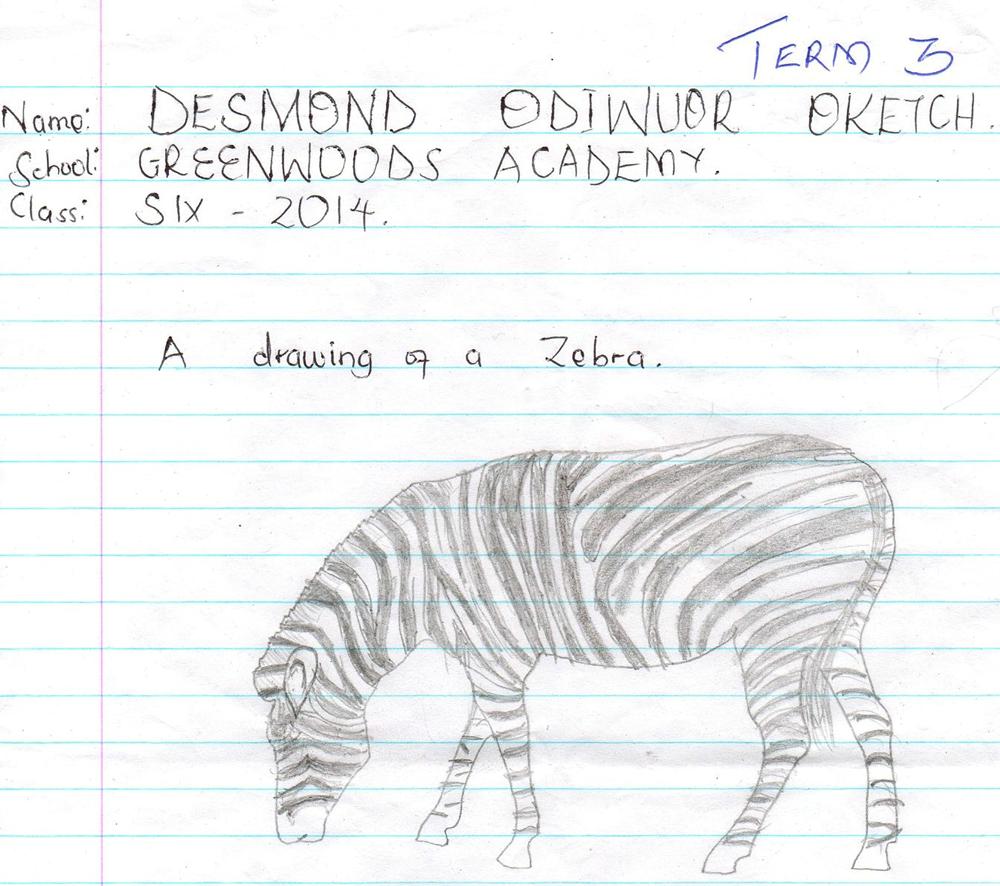 TERM 3
Name: DESMOND ODIWUOR OKETCH.
School: GREENWOODS ACADEMY.
Class: SIX - 2014.
A drawing of a Zebra.